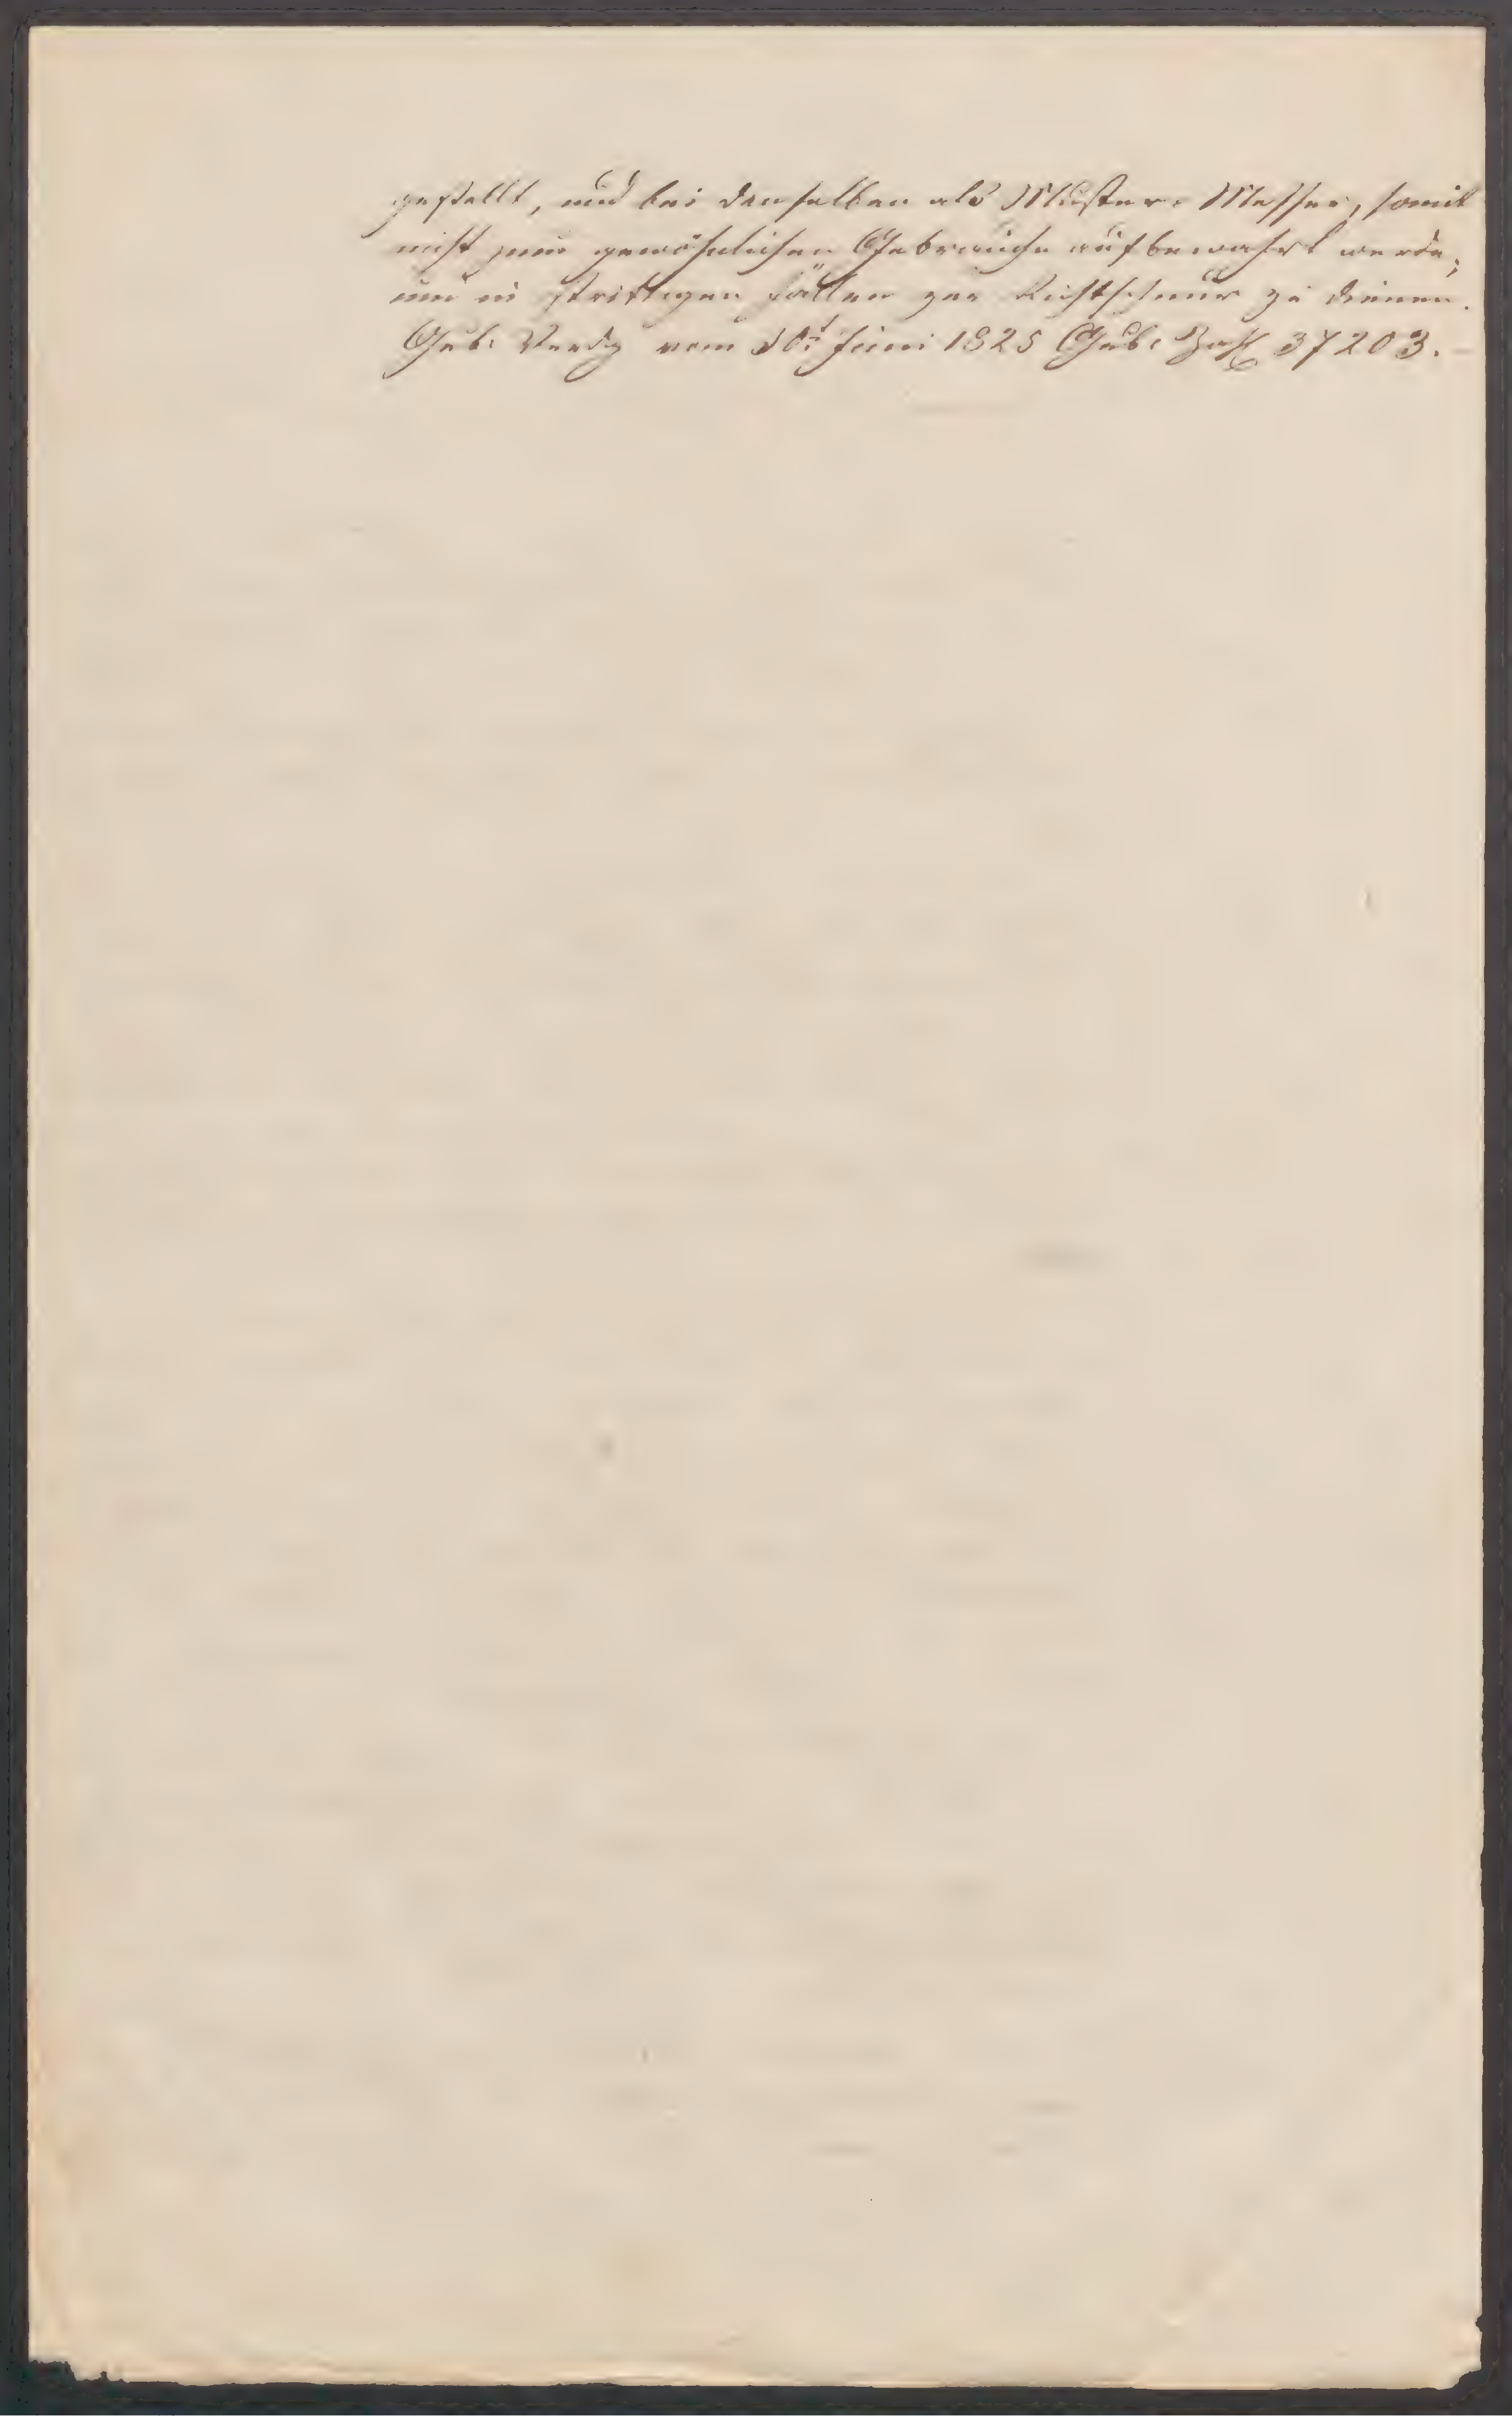 gestellt, und bei denselben als Muster-Messer, somit
nicht zum gewöhnlichen Gebrauche aufbewahrt werde,
um in strittigen Fällen zur Richtschnur zu dienen.
Gub: Verdg vom 30t Juni 1825 Gub: Zahl 37203. –